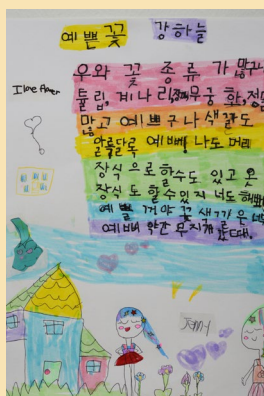 예쁜 꽃 강하늘
I love
우와 꽃 종류가 많
튤립, 개나리, 무궁화,
많고 예쁘구나 색깔도
알록달록 예뻐! 나도 머리
장식으로 할수도 있고 옷
장식도 할수있지 너도
예쁠 거야 꽃 색
예뻐 약간 무지개